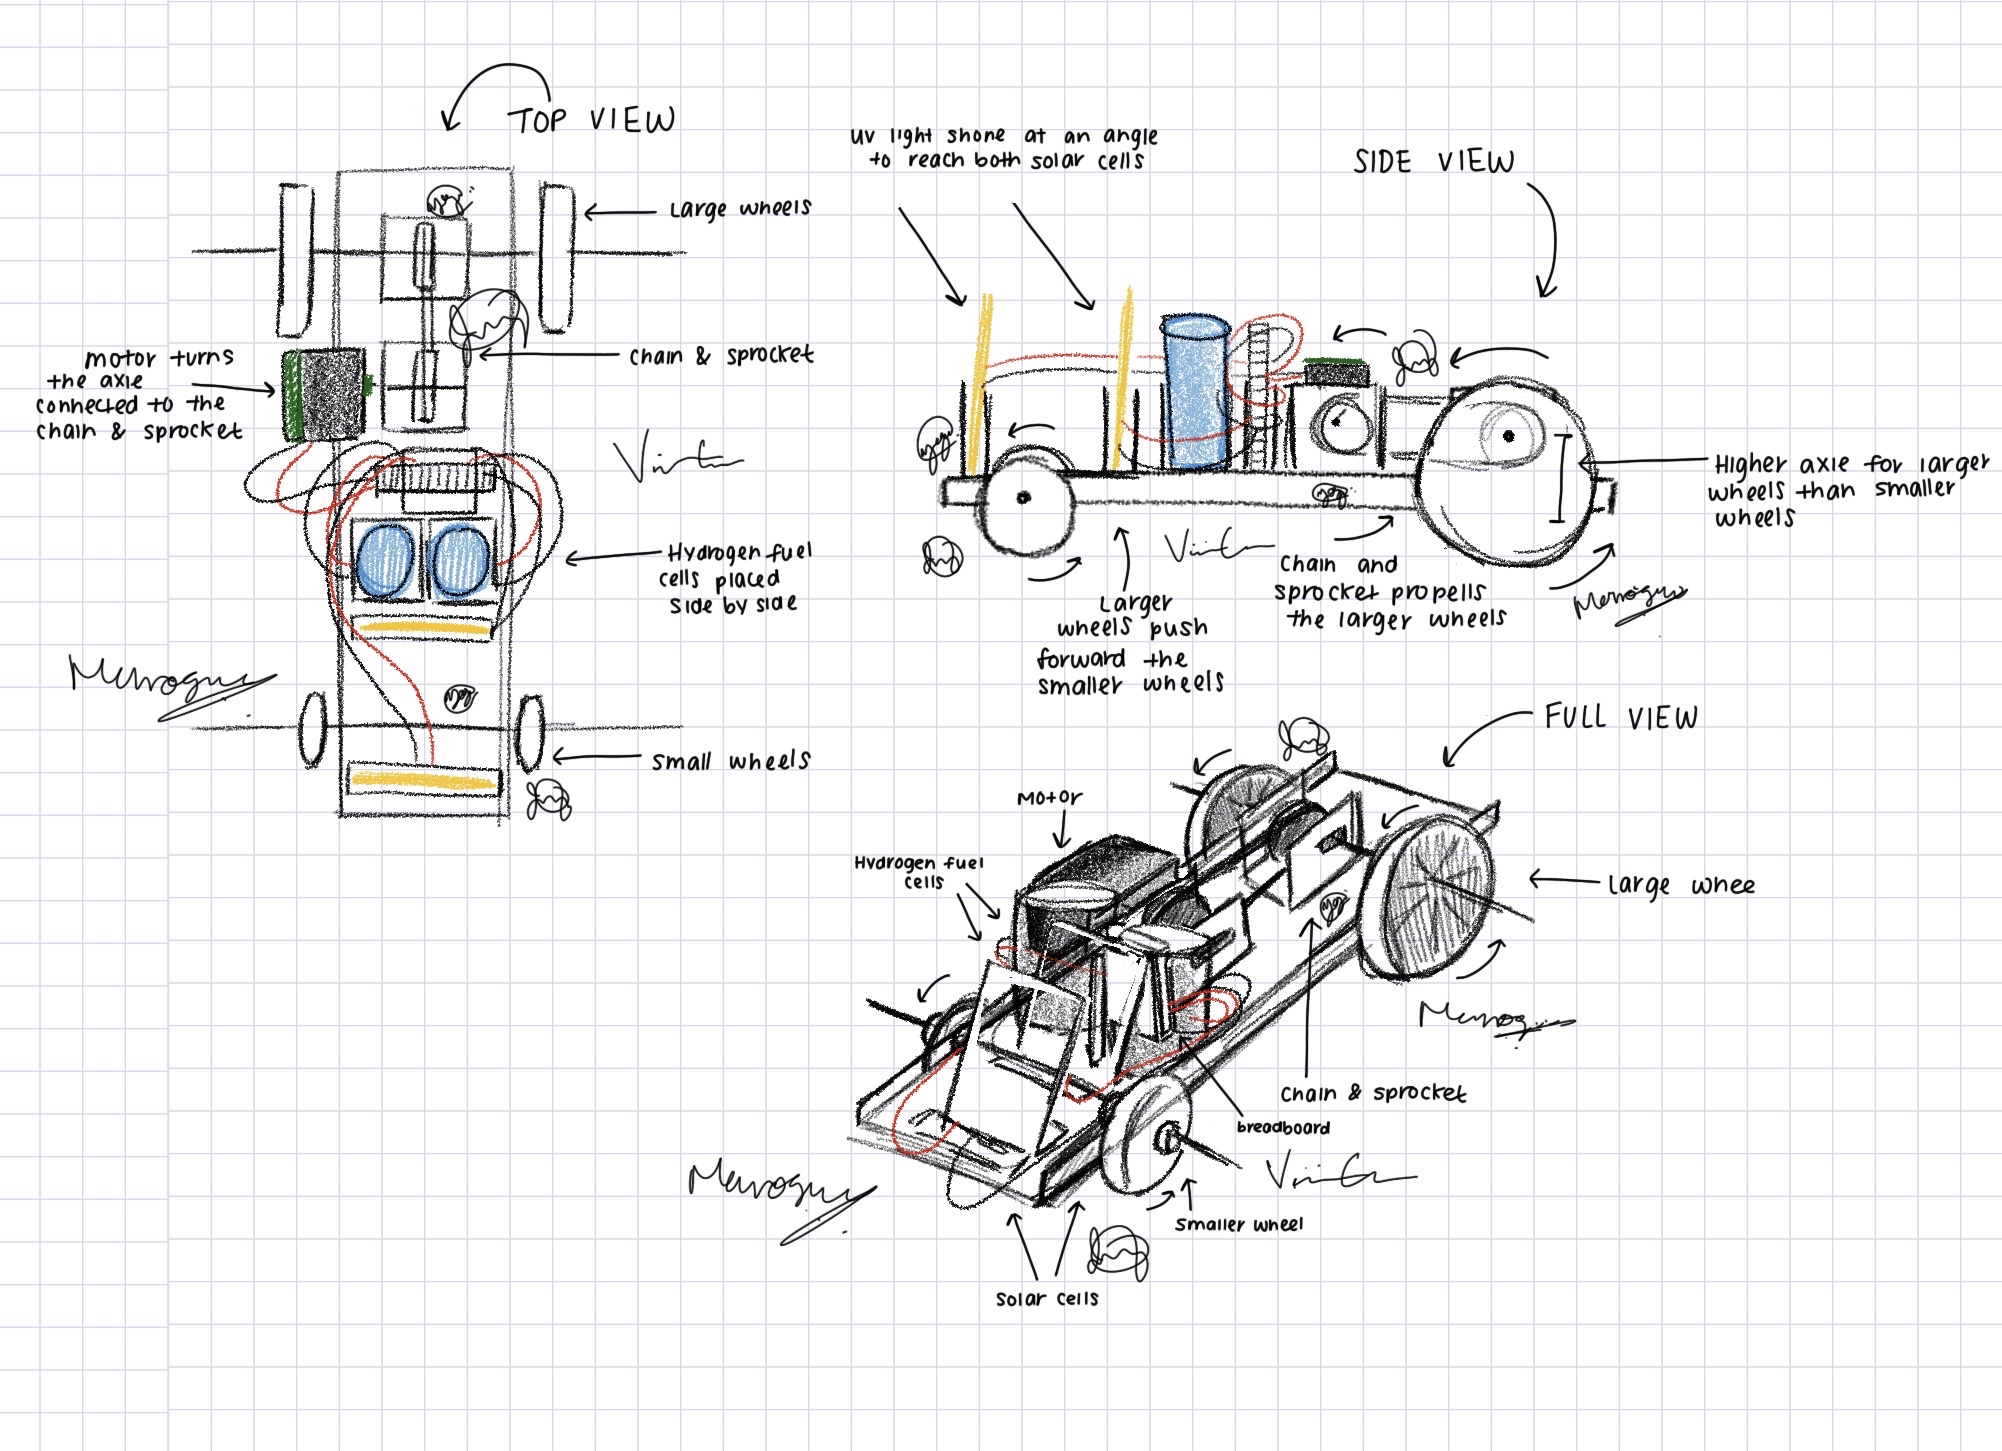 TOP VIEW
Large wheels
chain & sprocket
motor turns
the axie
connected to the
chain & sprocket
Hydrogen fuel
cells placed
side by side
small wheels
UV light shone at an angle
to reach both solar cells
SIDE VIEW
Higher axie for larger
wheels than smaller
wheels
Larger
wheels push
forward the
smaller wheels
Chain and
sprocket propells
the larger wheels
FULL VIEW
Motor
Hydrogen fuel
cells
Large whee
Chain & sprocket
breadboard
Smaller wheel
solar cells